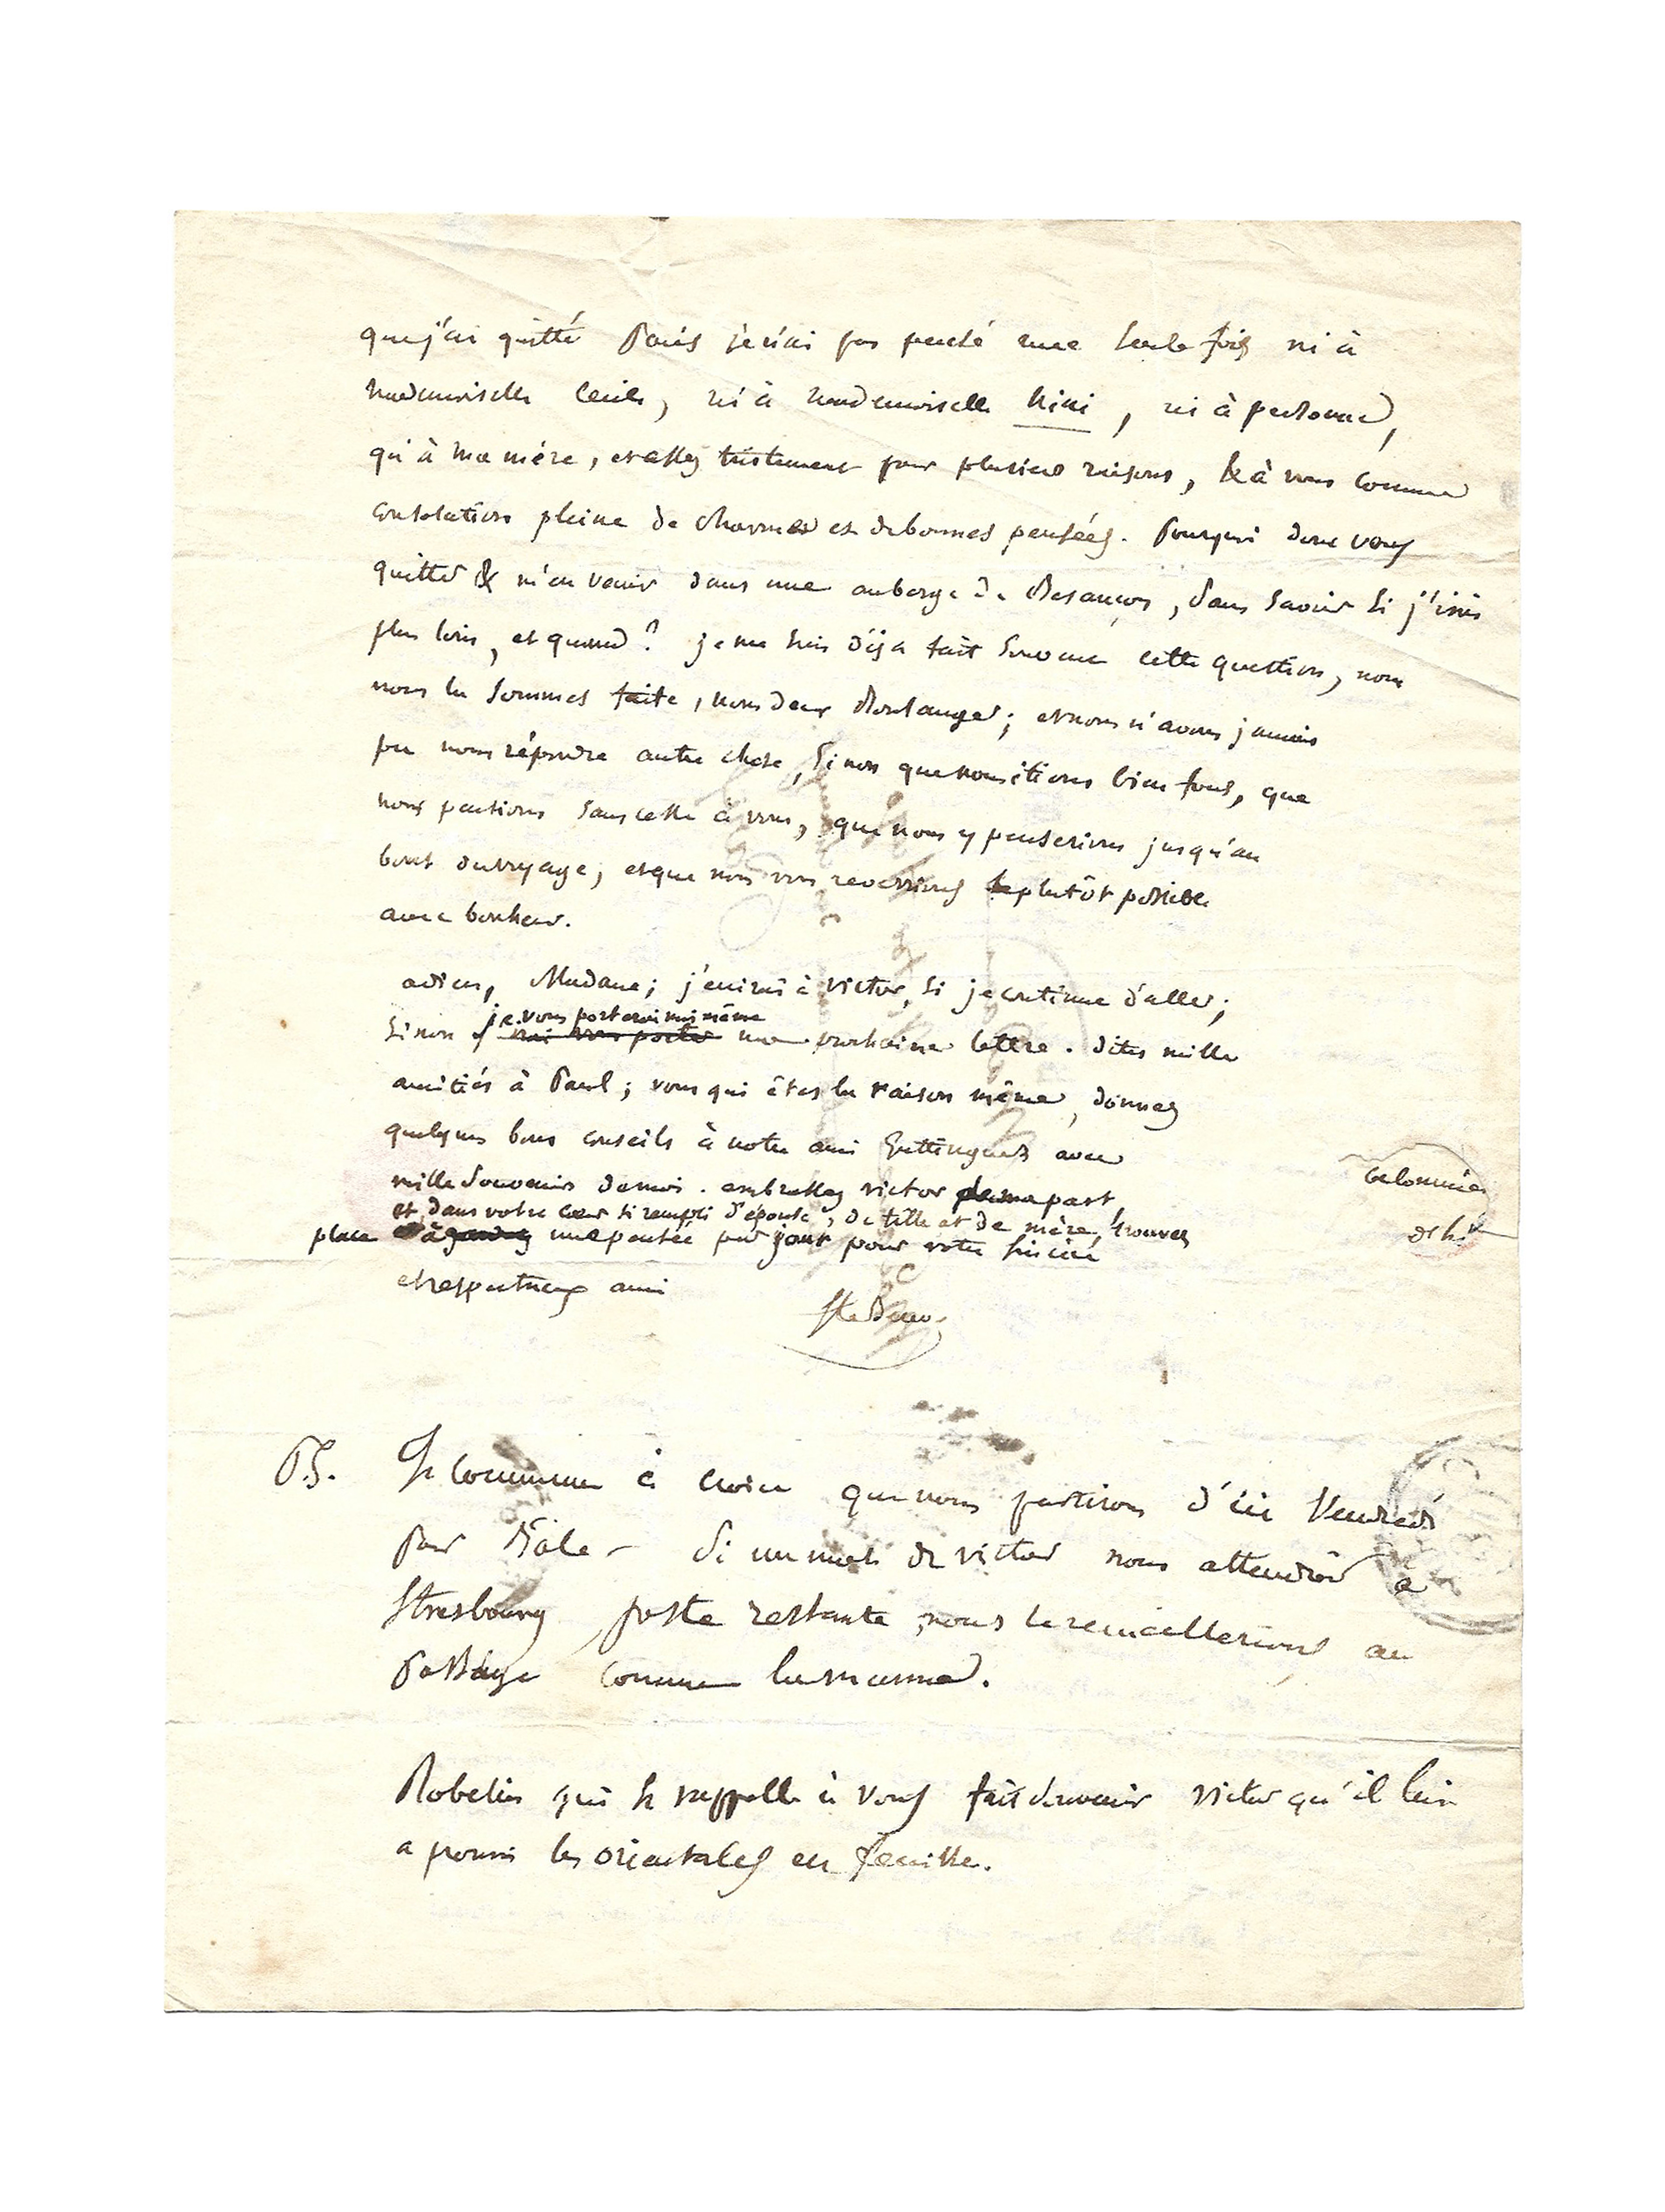 que j'ai quitté Paris je n'ai pas pensé une seule fois ni à
mademoiselle Cécile, ni à mademoiselle Nini, ni à personne,
qu'à ma mère, et assez tristement pour plusieurs raisons, & à vous comme
consolation pleine de charmes et de bonnes pensées. Pourquoi donc vous
quitter & m'en venir dans une auberge de Besançon, sans savoir si j'irais
plus loin, et quand? je me suis déjà fait souvent cette question, nous
nous la sommes faite, nous deux Boulanger; et nous n'avons jamais
pu nous répondre autre chose, sinon que nous étions bien fous, que
nous pensions sans cesse à vous, que nous y penserions jusqu'au
bout du voyage, et que nous vous reverrions le plutôt possible
avec bonheur.
adieu, Madame; j'écrirai à victor, si je continue d'aller;
je vous porterai moi même
sinon j'irai vous porter ma prochaine lettre. dites mille
amitiés à Paul; vous qui êtes la raison même, donnez
quelques bons conseils à notre ami Guttinguer avec
mille souvenirs de moi. embrassez victor de ma part,
et, dans votre cœur si rempli d'épouse, de fille et de mère, trouvez
place à une pensée par jour pour votre sincère
et respectueux ami
Ste Beuve
PS. Je commence à croire que nous partirons d'ici Vendredi
pour Bâle – Si un mot de victor nous attendait à
Strasbourg poste restante, nous le recueillerions au
passage comme la manne.
Robelin qui se rappelle à vous fait souvenir victor qu'il lui
a promis les orientales en feuille.